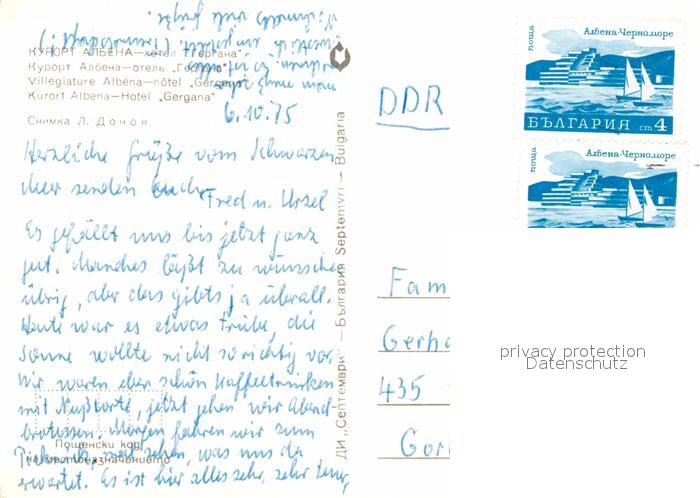 КУРОРТ АЛБЕНА — хотел "Гергана"
Курорт Албена — отель "Гергана"
Villégiature Albéna — hôtel "Gergana"
Kurort Albena — Hotel "Gergana"
Снимка Л. Донов
6.10.75
Herzliche Grüße vom Schwarzen
Meer senden Euch
Fred u. Ursel
Es gefällt uns bis jetzt ganz
gut. Manches läßt zu wünschen
übrig, aber das gibts ja überall.
Heute war es etwas trübe, die
Sonne wollte nicht so richtig vor.
Wir waren eber schön Kaffeetrinken
mit Nußtorte, jetzt gehen wir Abend-
brotessen. Morgen fahren wir zum
mal sehen, was uns da
erwartet. Es ist hier alles sehr, sehr teuer,
Пощенски код
на местоназначението
ДИ „Септември" — България Septemvri — Bulgaria
DDR
поща
Албена-Черноморе
БЪЛГАРИЯ ст 4
поща
Албена-Черноморе
Fam
Gerha
435
Gor
privacy protection
Datenschutz